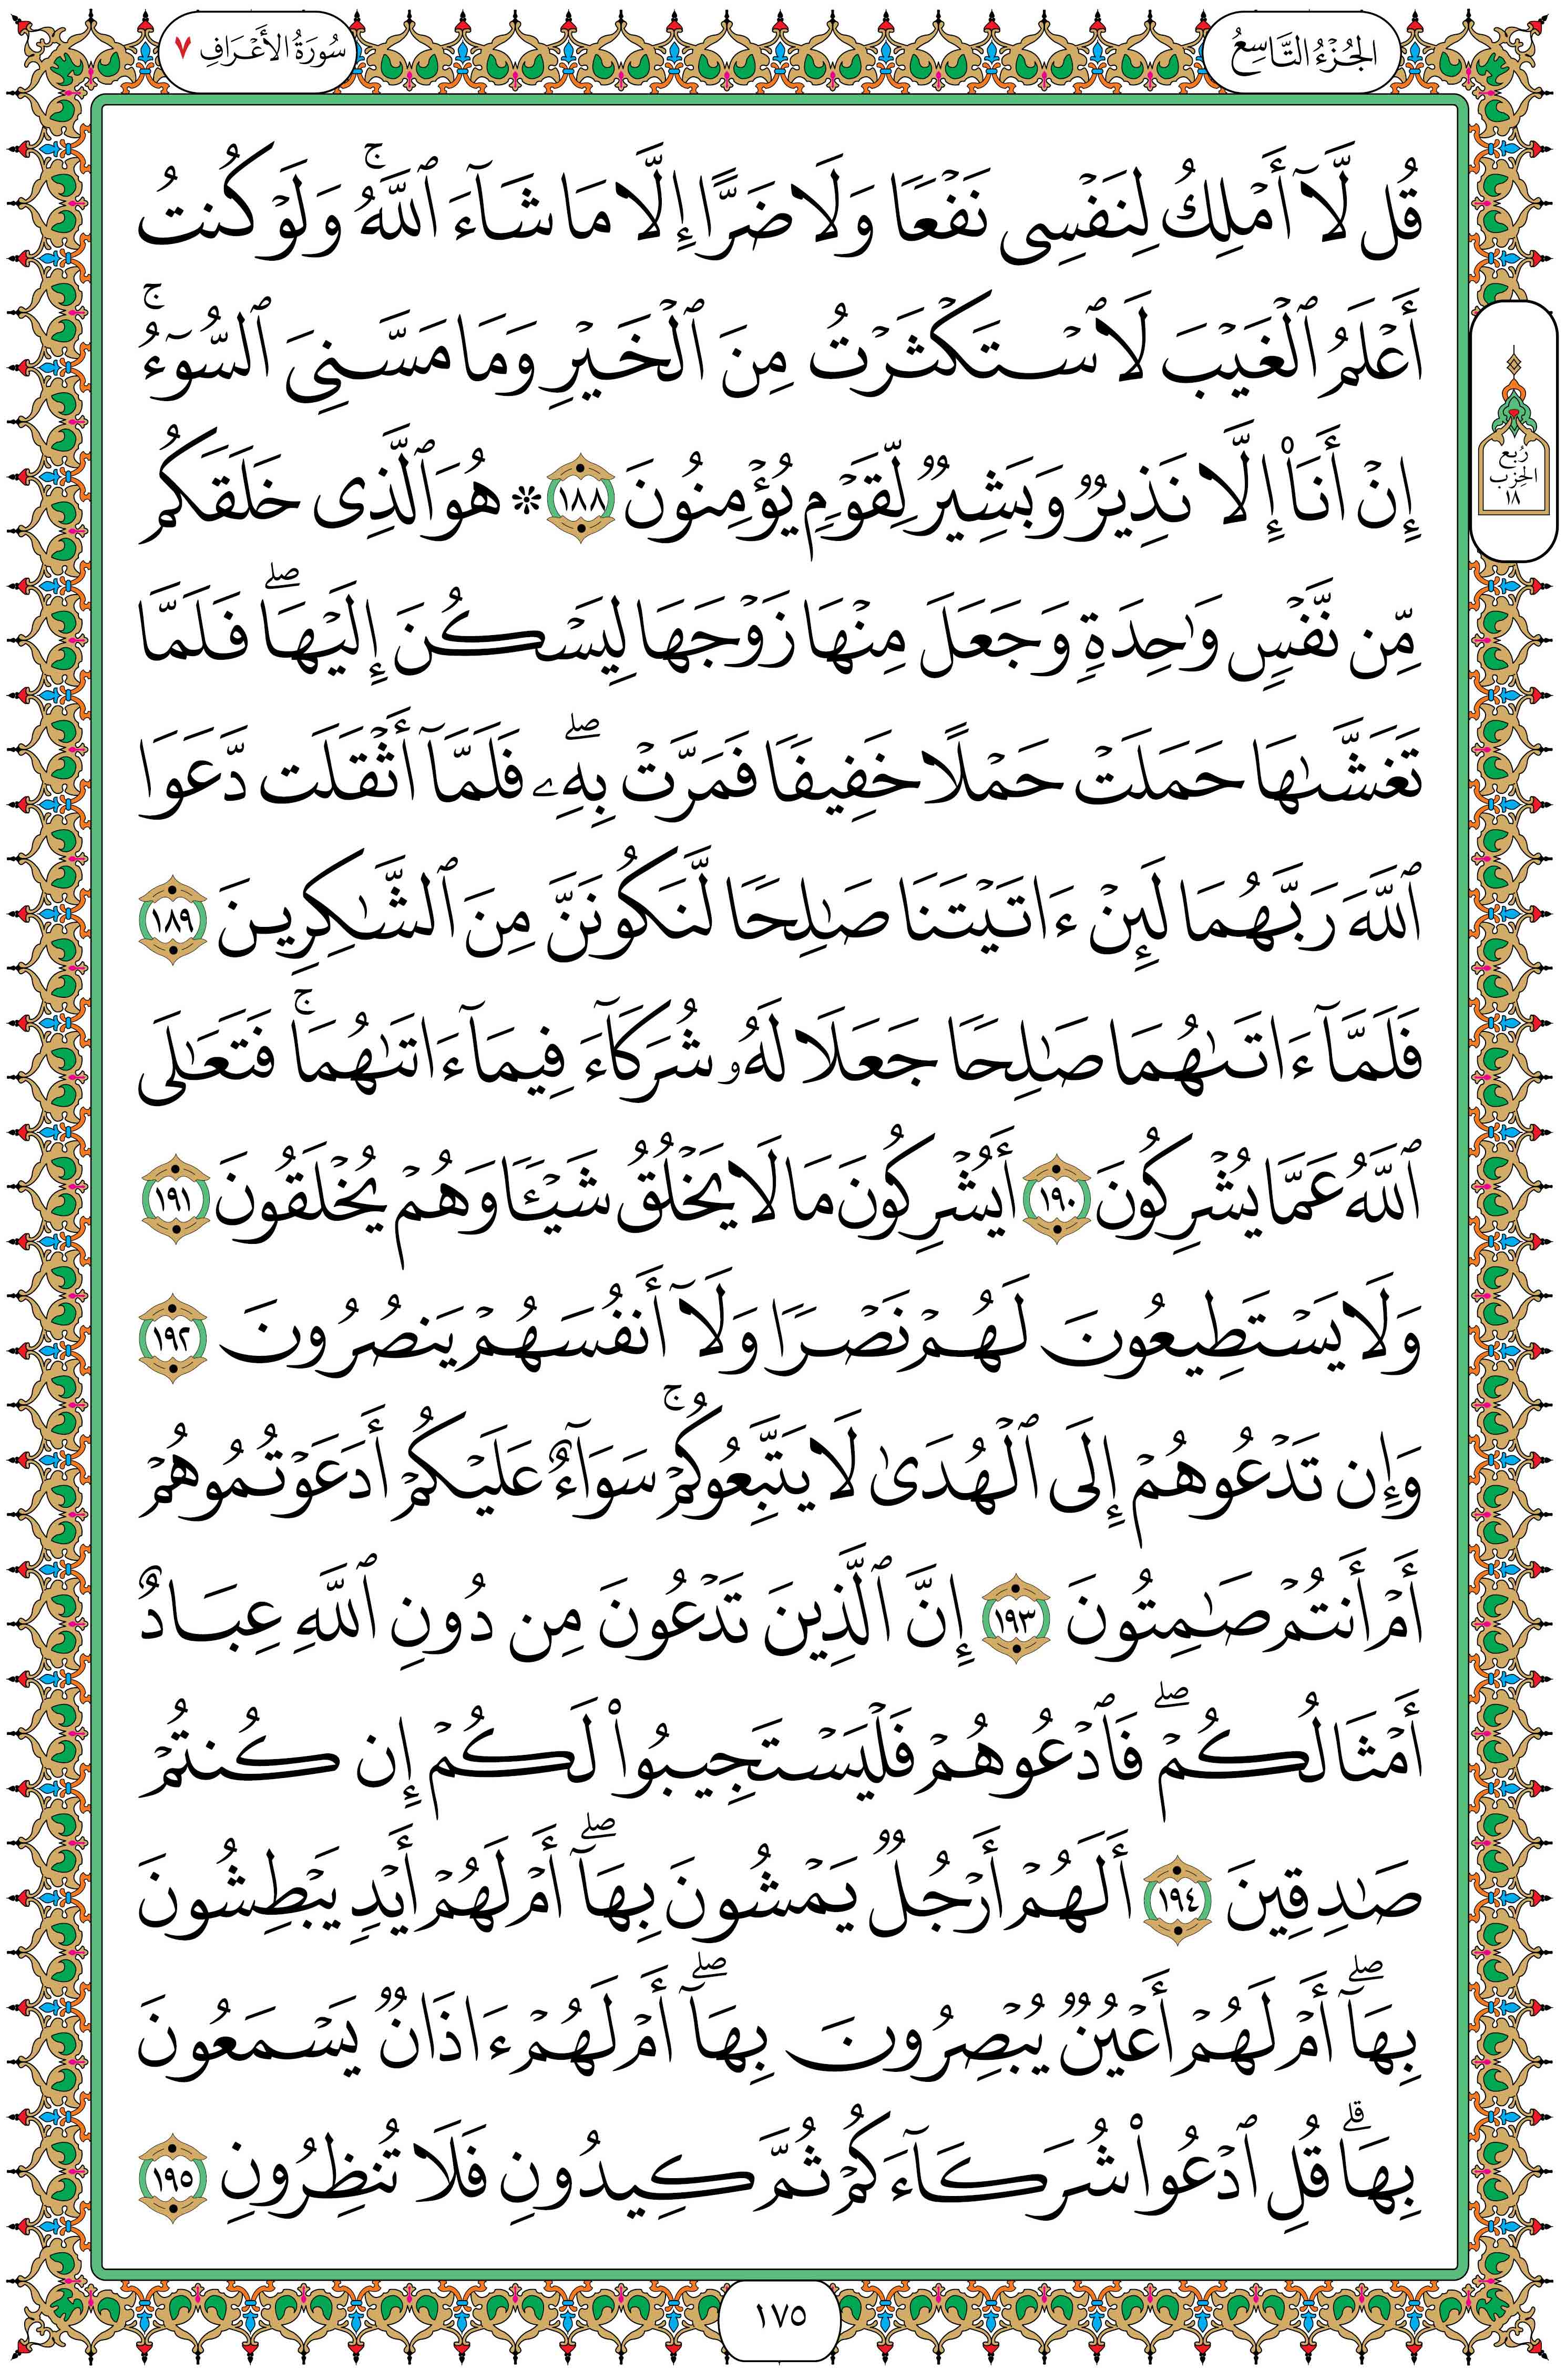 الجُزْءُ التَّاسِعُ
سُورَةُ الأَعْرَافِ ٧
قُل لَّآ أَمْلِكُ لِنَفْسِى نَفْعًا وَلَا ضَرًّا إِلَّا مَا شَآءَ ٱللَّهُ ۚ وَلَوْ كُنتُ
أَعْلَمُ ٱلْغَيْبَ لَٱسْتَكْثَرْتُ مِنَ ٱلْخَيْرِ وَمَا مَسَّنِىَ ٱلسُّوٓءُ ۚ
إِنْ أَنَا۠ إِلَّا نَذِيرٌ وَبَشِيرٌ لِّقَوْمٍ يُؤْمِنُونَ ١٨٨ ۞ هُوَ ٱلَّذِى خَلَقَكُم
مِّن نَّفْسٍ وَٰحِدَةٍ وَجَعَلَ مِنْهَا زَوْجَهَا لِيَسْكُنَ إِلَيْهَا ۖ فَلَمَّا
تَغَشَّىٰهَا حَمَلَتْ حَمْلًا خَفِيفًا فَمَرَّتْ بِهِۦ ۖ فَلَمَّآ أَثْقَلَت دَّعَوَا
ٱللَّهَ رَبَّهُمَا لَئِنْ ءَاتَيْتَنَا صَٰلِحًا لَّنَكُونَنَّ مِنَ ٱلشَّٰكِرِينَ ١٨٩
فَلَمَّآ ءَاتَىٰهُمَا صَٰلِحًا جَعَلَا لَهُۥ شُرَكَآءَ فِيمَآ ءَاتَىٰهُمَا ۚ فَتَعَٰلَى
ٱللَّهُ عَمَّا يُشْرِكُونَ ١٩٠ أَيُشْرِكُونَ مَا لَا يَخْلُقُ شَيْـًٔا وَهُمْ يُخْلَقُونَ ١٩١
وَلَا يَسْتَطِيعُونَ لَهُمْ نَصْرًا وَلَآ أَنفُسَهُمْ يَنصُرُونَ ١٩٢
وَإِن تَدْعُوهُمْ إِلَى ٱلْهُدَىٰ لَا يَتَّبِعُوكُمْ ۚ سَوَآءٌ عَلَيْكُمْ أَدَعَوْتُمُوهُمْ
أَمْ أَنتُمْ صَٰمِتُونَ ١٩٣ إِنَّ ٱلَّذِينَ تَدْعُونَ مِن دُونِ ٱللَّهِ عِبَادٌ
أَمْثَالُكُمْ ۖ فَٱدْعُوهُمْ فَلْيَسْتَجِيبُوا۟ لَكُمْ إِن كُنتُمْ
صَٰدِقِينَ ١٩٤ أَلَهُمْ أَرْجُلٌ يَمْشُونَ بِهَآ ۖ أَمْ لَهُمْ أَيْدٍ يَبْطِشُونَ
بِهَآ ۖ أَمْ لَهُمْ أَعْيُنٌ يُبْصِرُونَ بِهَآ ۖ أَمْ لَهُمْ ءَاذَانٌ يَسْمَعُونَ
بِهَا ۗ قُلِ ٱدْعُوا۟ شُرَكَآءَكُمْ ثُمَّ كِيدُونِ فَلَا تُنظِرُونِ ١٩٥
رُبع
الحِزْب
١٨
١٧٥